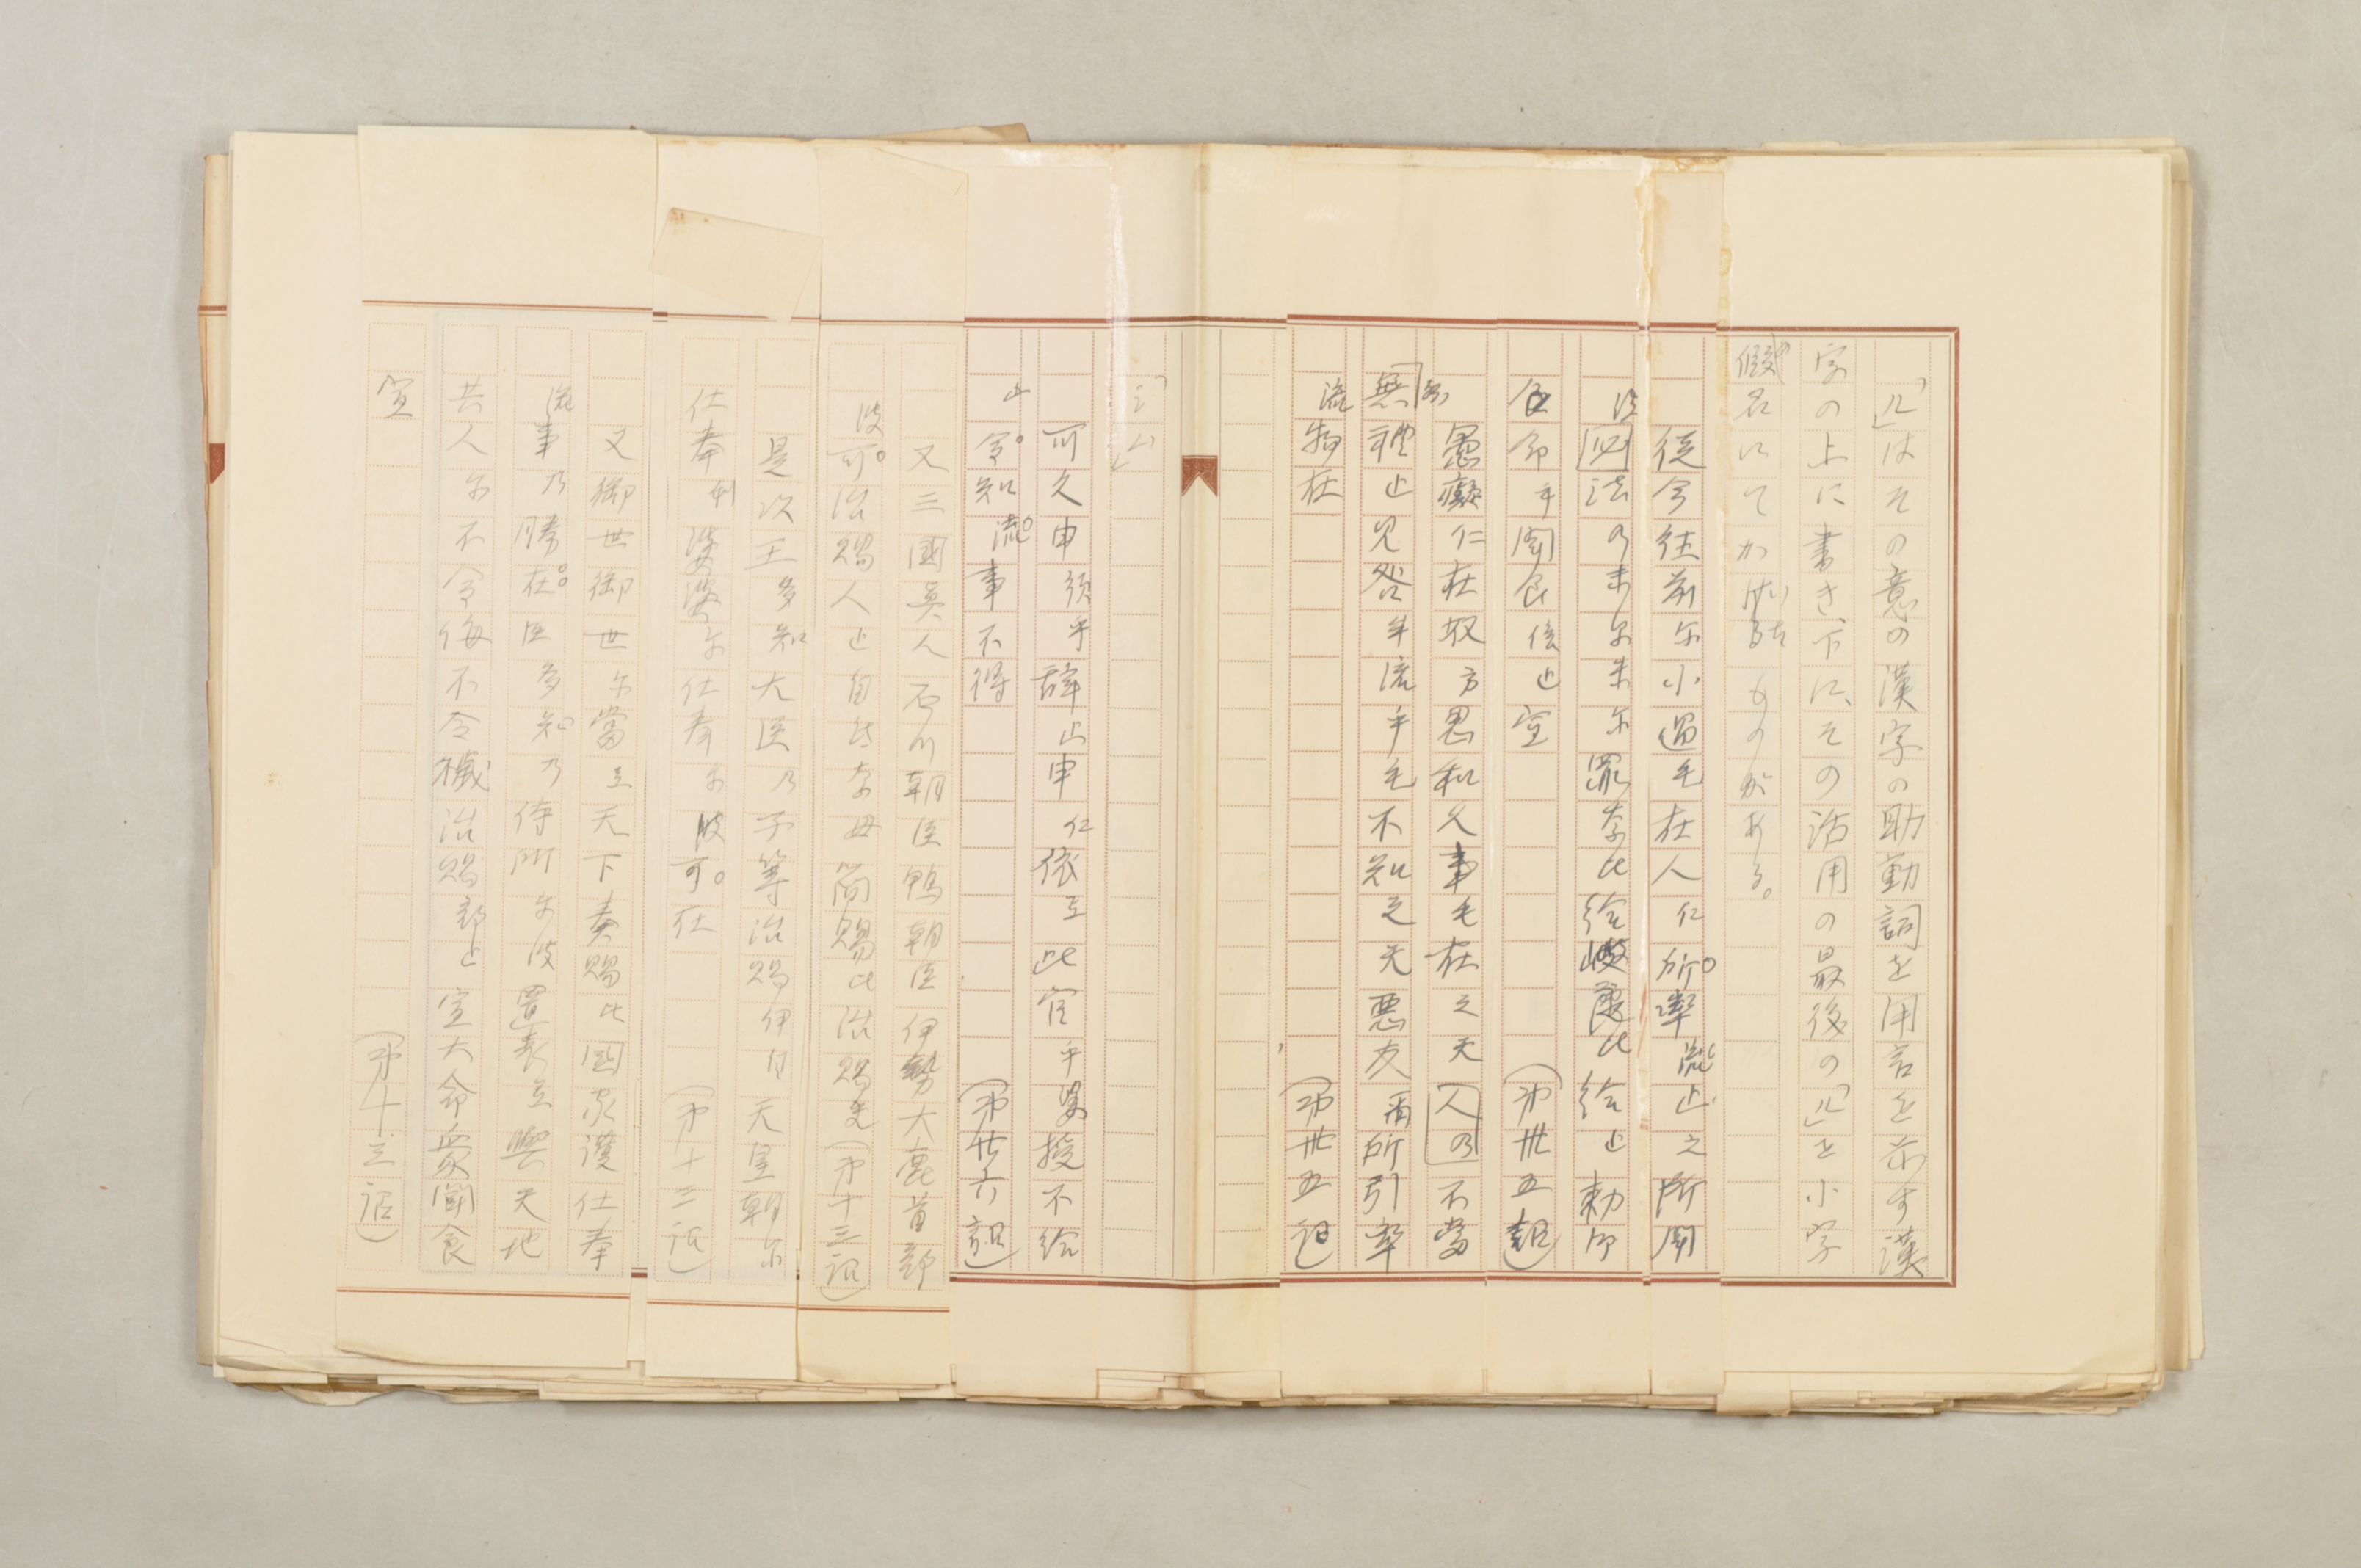 「ル」はその意の漢字の助動詞を用言を示す漢
字の上に書き、下に、その活用の最後の「ル」を小字
假名にてかけるものがある。
従今往前尓小過毛在人仁所率流止之所聞
必法乃末尓末尓罪奈比給岐良比給止勅御
命乎聞食倍止宣 (第卅五詔)
愚癡仁在奴方思和久事毛在之天人乃不當
無禮止見咎牟流乎毛不知之天悪友尓所引率
流物在 (第卅五詔)
可久申須乎辭止申仁依天此官乎婆授不給
止令知流事不得 (第廿六詔)
又三國真人石川朝臣鴨朝臣伊勢大鹿首部
波可治賜人止自弖奈母簡賜比治賜夫 (第十三詔)
是以王多知大臣乃子等治賜伊自天皇朝尓
仕奉利婆婆尓仕奉尓波可仕 (第十三詔)
又御世御世尓當天天下奏賜比國家護仕奉
流事乃勝在臣多知乃侍所尓波置表天與天地
共人尓不令侮不令穢治賜部止宣大命衆聞食
宣 (第十三詔)